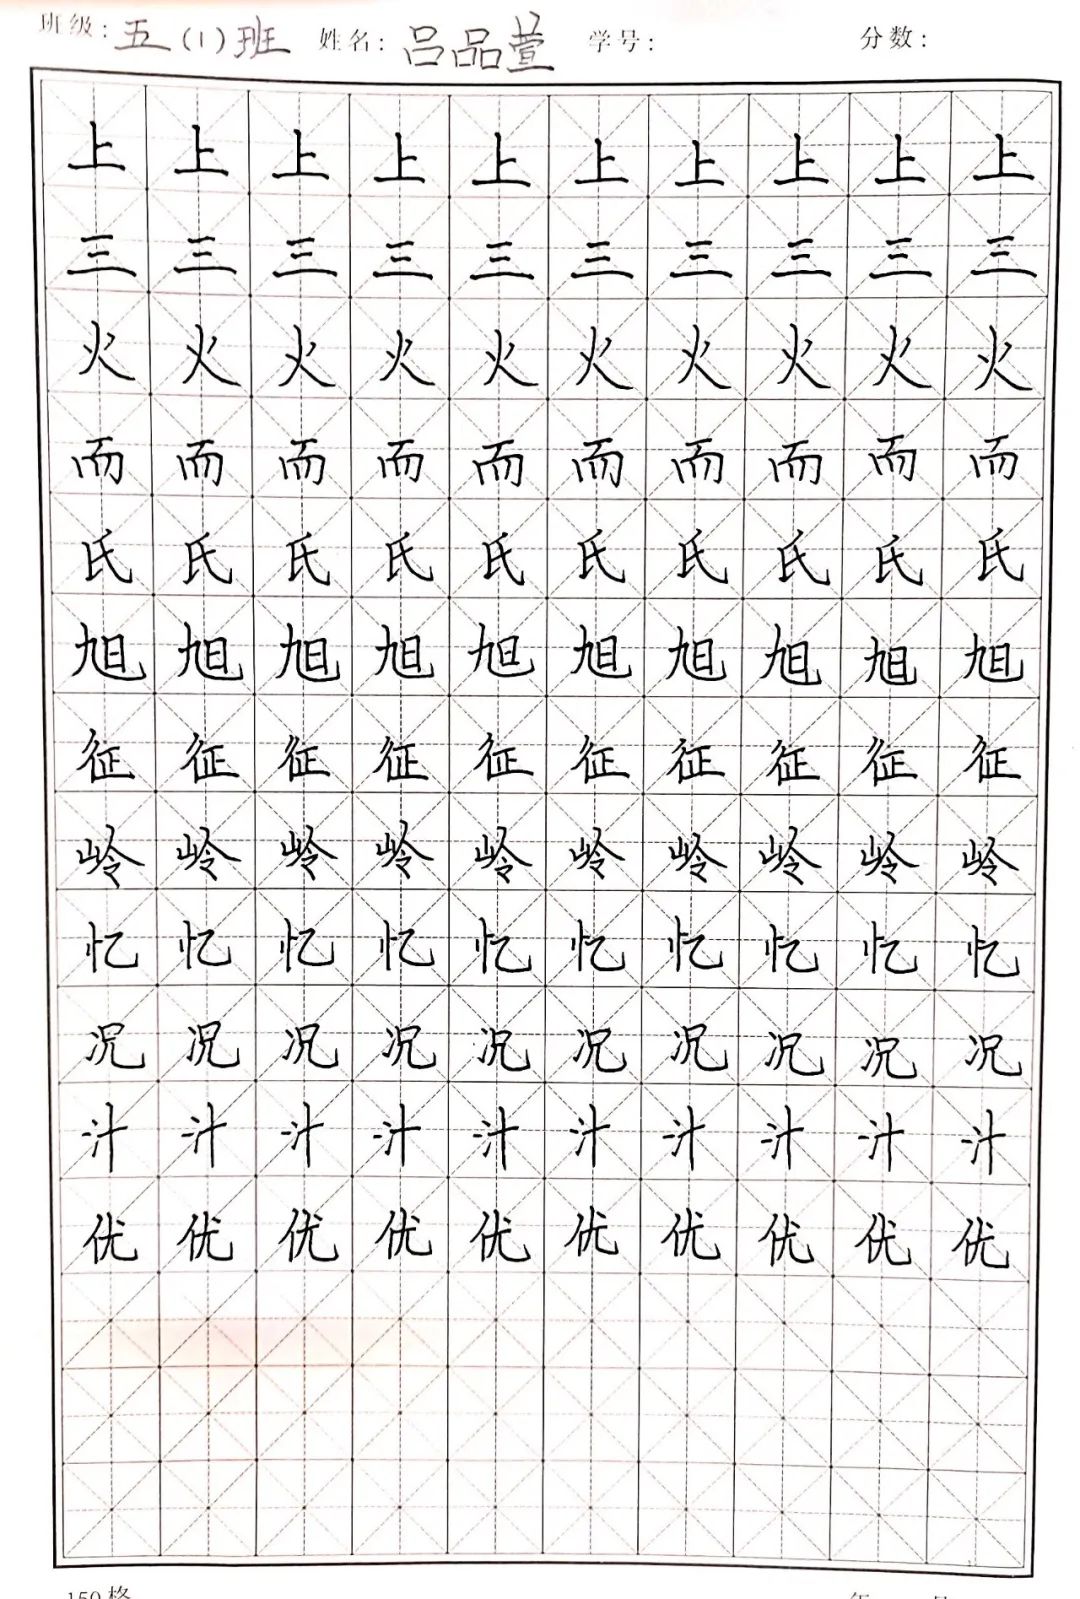 班级：五（1）班 姓名：吕品萱 学号： 分数：
上上上上上上上上上上
三三三三三三三三三三
火火火火火火火火火火
而而而而而而而而而而
氏氏氏氏氏氏氏氏氏氏
旭旭旭旭旭旭旭旭旭旭
征征征征征征征征征征
岭岭岭岭岭岭岭岭岭岭
忆忆忆忆忆忆忆忆忆忆
况况况况况况况况况况
汁汁汁汁汁汁汁汁汁汁
优优优优优优优优优优
150格 年 月